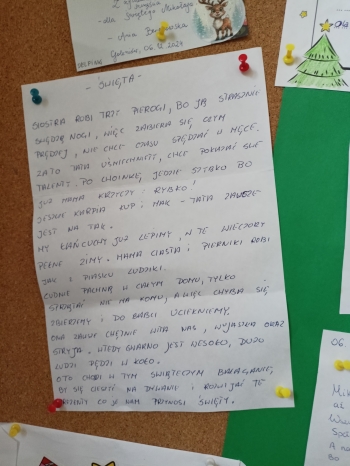 Z
-dla Świętego Mikołaja
- Ana
06.12.2024
- ŚWIĘTA -
SIOSTRA ROBI TRZY PIEROGI, BO JĄ STRASZNIE
SWĘDZĄ NOGI, WIĘC ZABIERA SIĘ CZYM
PRĘDZEJ, NIE CHCE CZASU SPĘDZAĆ W MĘCE.
ZA TO TATA UŚMIECHNIĘTY, CHCE POKAZAĆ SWE
TALENTY. PO CHOINKĘ JEDZIE SZYBKO BO
JUŻ MAMA KRZYCZY: RYBKO!
JESZCZE KARPIA KUP I MAK - TATA ZAWSZE
JEST NA TAK.
MY ŁAŃCUCHY JUŻ LEPIMY, W TE WIECZORY
PEŁNE ZIMY. MAMA CIASTA I PIERNIKI ROBI
JAK Z PIASKU LUDZIKI.
CUDNIE PACHNĄ W CAŁYM DOMU, TYLKO
SPRZĄTAĆ NIE MA KOMU, A WIĘC CHYBA SIĘ
ZBIERZEMY I DO BABCI UCIEKNIEMY.
ONA ZAWSZE CHĘTNIE WITA NAS, WUJASZKA ORAZ
STRYJA. WTEDY GWARNO JEST WESOŁO, DUŻO
LUDZI PĘDZI W KOŁO.
OTO CHODZI W TYM ŚWIĄTECZNYM BAŁAGANIE,
BY SIĘ CIESZYĆ NA DYWANIE I ROZWIJAĆ TE
PREZENTY CO JE NAM PRZYNOSI ŚWIĘTY.
06.